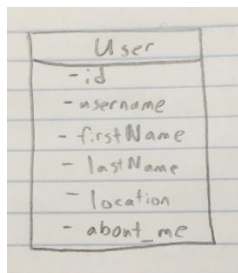 User
- id
- username
- firstName
- lastName
- location
- about_me